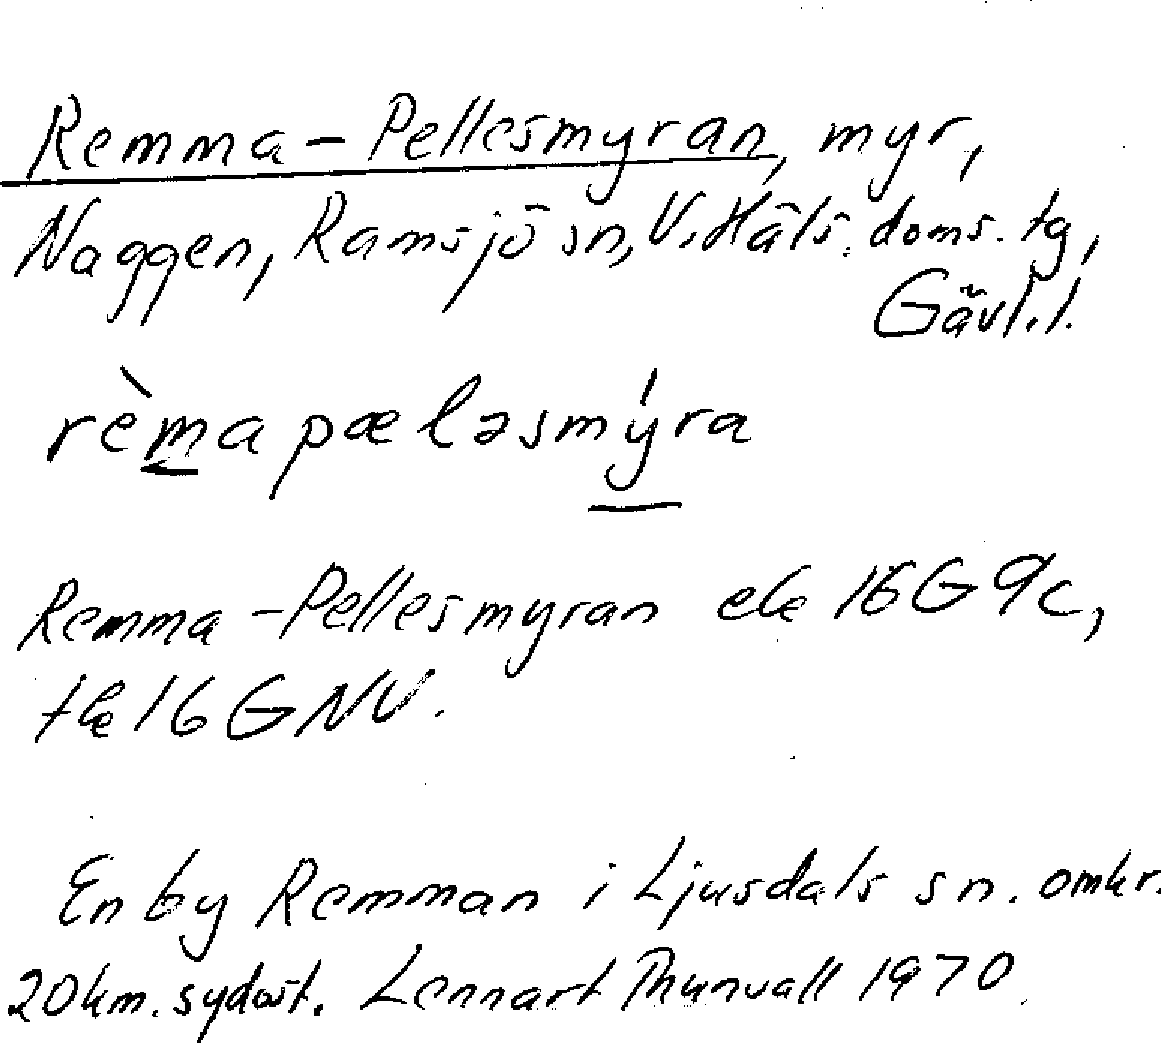 Remma-Pellesmyran, myr,
Naggen, Ramsjö sn, V. Häls. doms. tg,
Gävl. l.
rèma pæləsmýra
Remma-Pellesmyran ek 16G 9c,
tk 16 G NV.
En by Remman i Ljusdals sn. omkr.
20 km. sydost. Lennart Thunvall 1970